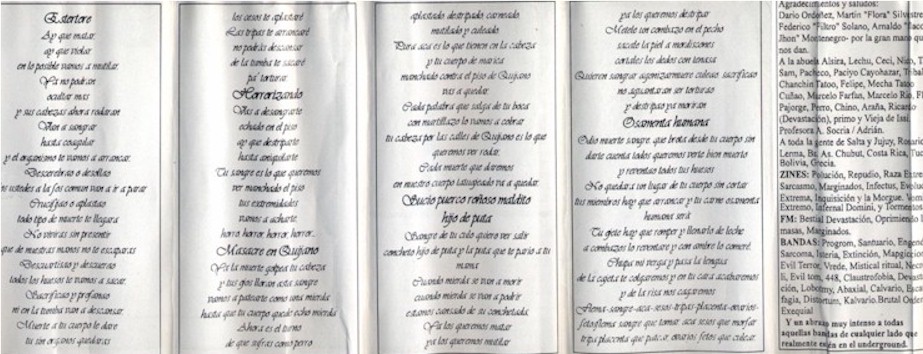 Estertore
Ay que matar
ay que violar
en lo posible vamos a mutilar.
Ya no podran
ocultar mas
y sus cabezas ahora rodaran
Van a sangrar
hasta coagular
y el organismo te vamos a arrancar.
Descerebrao o desollao
ustedes a la fos comun van a ir a parar
Crucifjao o aplastao
todo tipo de muerte te llegara
No viviras sin presentir
que de nuestras manos no te escaparas
Descuartisao y descuerao
todos los huesos te vamos a sacar.
Sacrificao y profanao
ni en la tumba van a descansar.
Muerte a tu cuerpo le dare
tu sin organos quedaras
los cesos te aplastaré
Las tripas te arrancaré
no podrás descansar
de la tumba te sacaré
pa' torturar.
Horrorizando
Vas a desangrarte
echado en el piso
ay que destriparte
hasta aniquilarte
Tu sangre es lo que queremos
ver manchado el piso
tus extremidades
vamos a acharte.
horro, horror, horror, horror.
Masacre en Quijano
Ys la muerte golpea tu cabeza
y tus ojos lloran asta sangre
vamos a patearte como una mierda
hasta que tu cuerpo quede echo mierda
Ahora es el turno
de que sufras como perro
aplastado destripado carneado
mutilado y culeado
Pura aca es lo que tienen en la cabeza
y tu cuerpo de marica
manchado contra el piso de Quijano
vas a quedar.
Cada palabra que salga de tu boca
con martillazo lo vamos a cobrar
tu cabeza por las calles de Quijano es lo que
queremos ver rodar.
Cada muerte que daremos
en nuestro cuerpo tatuajeado va a quedar.
Sucio puerco roñoso maldito
hijo de puta
Sangre de tu culo quiero ver salir
concheto hijo de puta y la puta que te pario a tu
mama
Cuando mierda se van a morir
cuando mierda se van a podrir
estamos cansado de su conchetada.
Ya los queremos matar
ya los queremos mutilar
ya los queremos destripar
Metete un combazo en el pecho
sacate la piel a mordiscones
cortales los dedos con tenasa
Quieren sangrar agonizarmuere culeao sacrificao
no aguantaran ser torturao
y destripao ya moriran
Osamenta humana
Odio muerte sangre que brota desde tu cuerpo sin
darte cuenta todos queremos verte bien muerto
y reventao todos tus huesos
No quedara un lugar de tu cuerpo sin cortar
tus miembros hay que arrancar y tu carne osamenta
humana será
Tu ojete hay que romper y llenarlo de leche
a combazos lo reventare y con ambre lo comeré.
Chupa mi verga y pasa la lengua
de la cajeta te colgaremos y en tu cara acabaremos
y de la risa nos cagaremos
Flema-sangre-aca-sesos-tripas-placenta-ovarios-
fetoflema sangre que tomar aca sesos que morfar
tripa placenta que paicar ovarios fetos que culear.
Agradecimientos y saludos:
Dario Ordoñez, Martin "Flora" Silvestre
Federico "Filtro" Solano, Arnaldo
Jhon" Montenegro- por la gran mano que
nos dan.
A la abuela Alsira, Lechu, Ceci, Nico, T
Sam, Pacheco, Paciyo Cayohazar,
Chanchin Tatoo, Felipe, Mecha Tatoo
Cuñao, Marcelo Farfas, Marcelo Rio,
Pajorge, Perro, Chino, Araña, Ricardo
(Devastación), primo y Vieja de Issi
Profesora A. Socria / Adrián.
A toda la gente de Salta y Jujuy, Rosario
Lerma, Bs. As. Chubut, Costa Rica, Tuc
Bolivia, Grecia.
ZINES: Polución, Repudio, Raza Extre
Sarcasmo, Marginados, Infectus,
Extrema, Inquisición y la Morgue.
Extremo, Infernal Domini, y Tormentos
FM: Bestial Devastación, Oprimiento
masas, Marginados.
BANDAS: Progrom, Santuario,
Sarcoma, Isteria, Extinción,
Evil Terror, Vrede, Mistical ritual,
li, Evil tom, 448, Claustrofobia, Devast
ción, Lobotemy, Abaxial, Calvario,
fagia, Distortum, Kalvario.Brutal
Exequial
Y un abrazo muy intenso a todas
aquellas bandas de cualquier lado que
realmente estén en el underground.